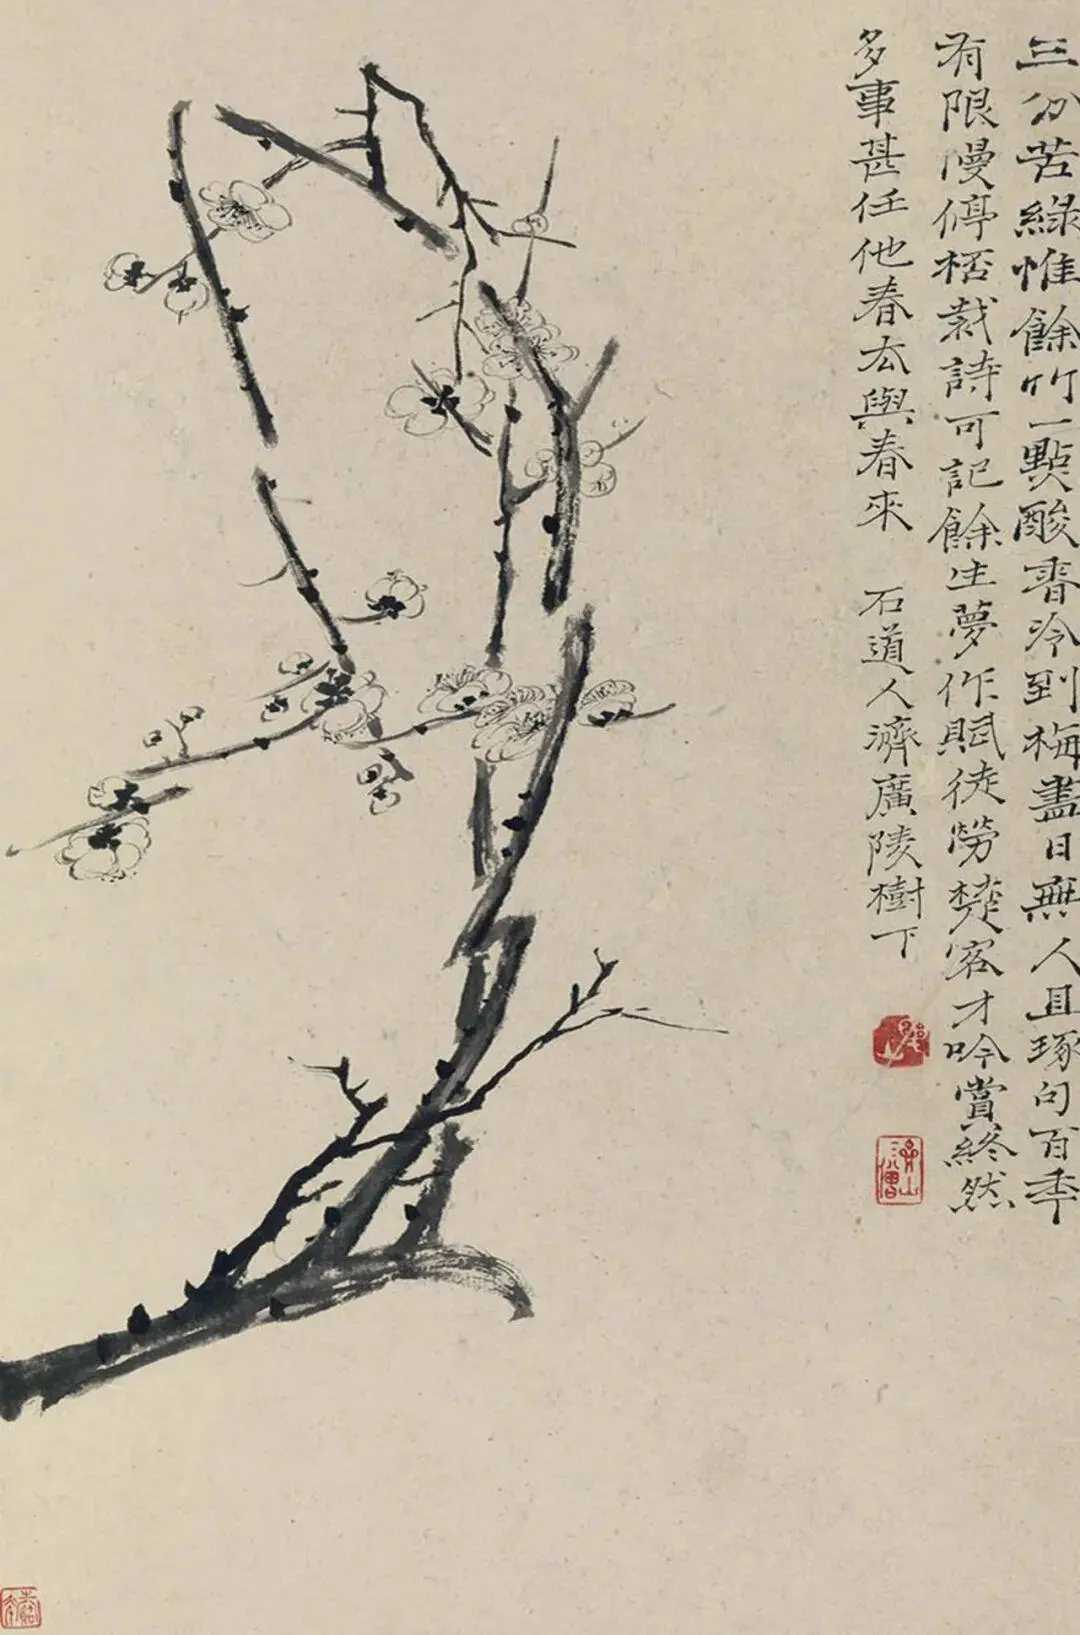 三分苦綠惟餘竹一點酸香冷到梅盡日無人且琢句百秊
有限漫停桮裁詩可記餘生夢作賦徒勞楚客才吟賞終然
多事甚任他春去與春來 石道人濟廣陵樹下